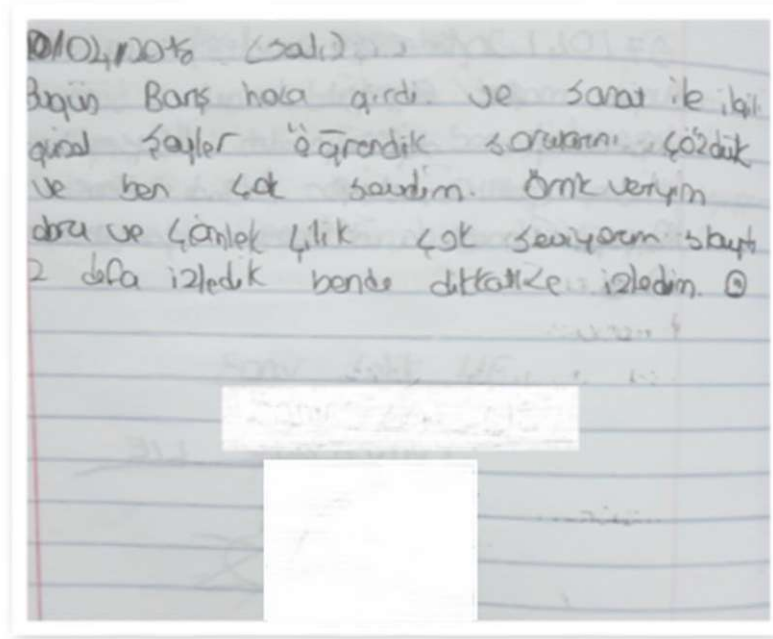 /04/2018 (salı)
Bugün Barış hoca girdi ve sanat ile ilgili
güzel şeyler öğrendik sorularını çözdük
ve ben çok sevdim. Örnk veriyim
ve Çömlek çilik çok seviyorum slaytı
2 defa izledik bende dikkatlice izledim.